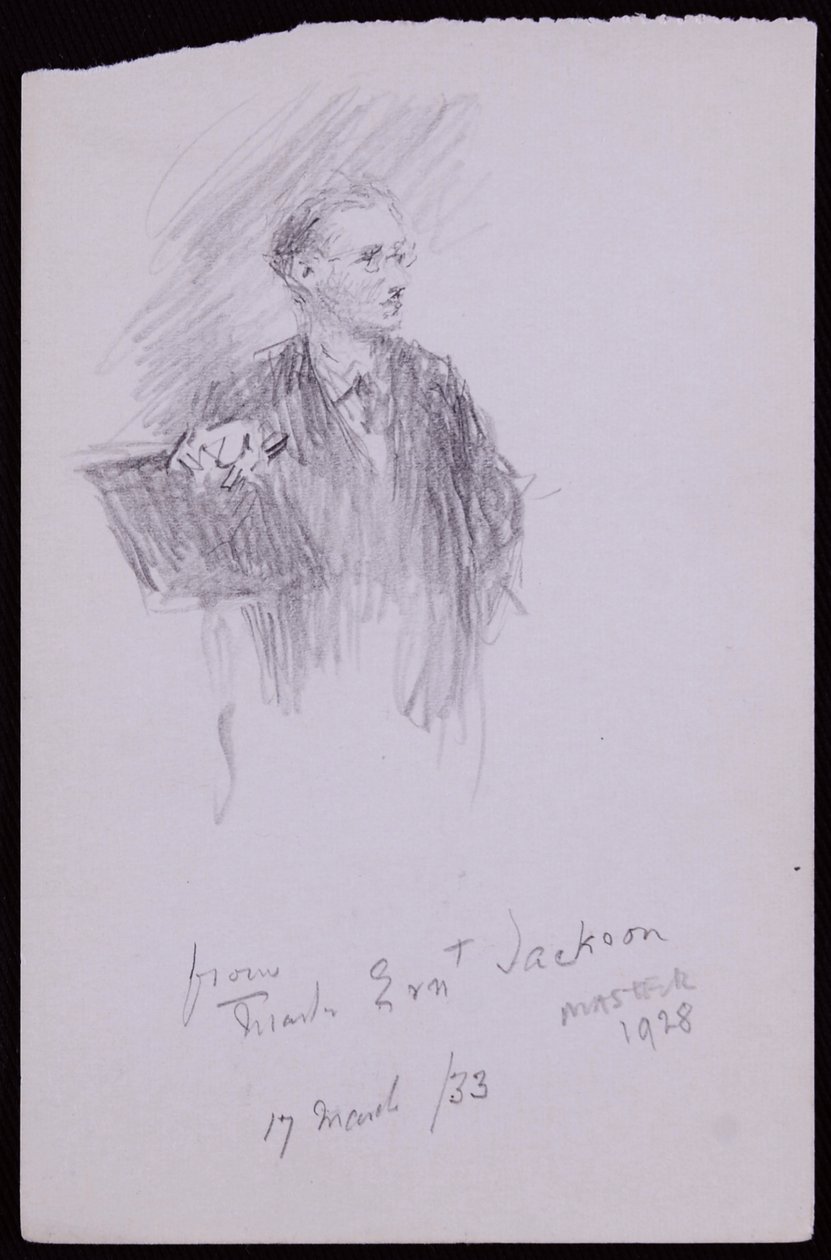 from
Master Ern^T Jackson
MASTER
1928
17 March /33